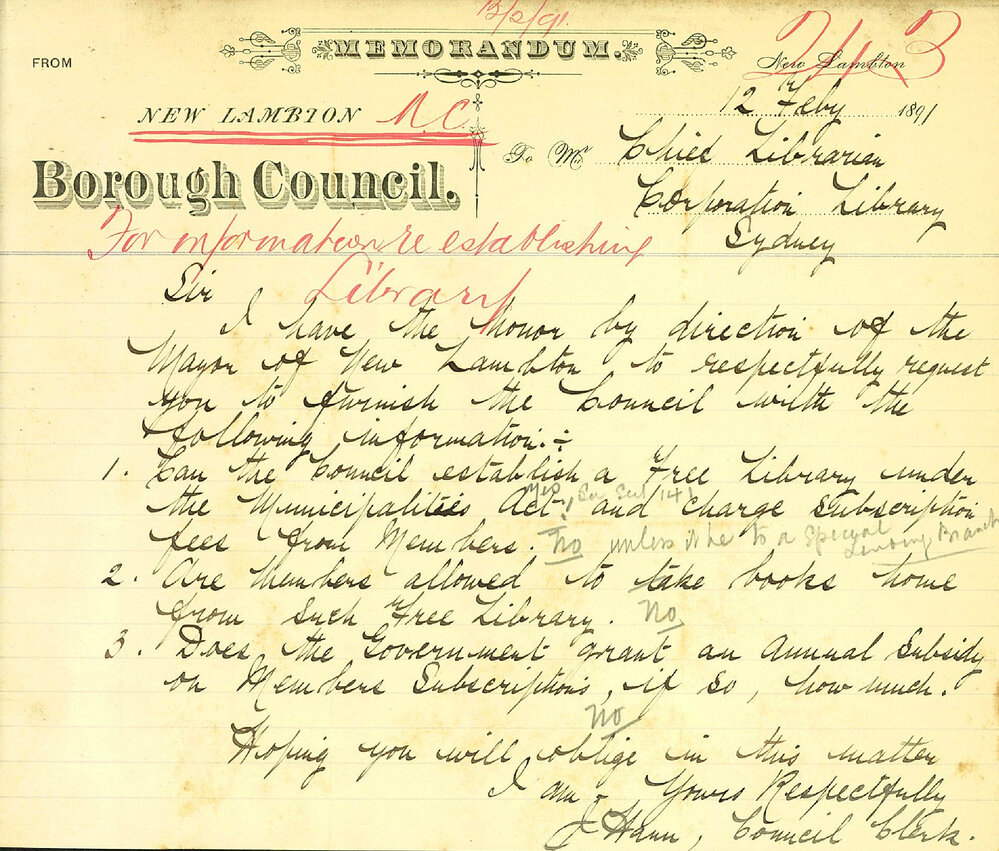 13/2/91
MEMORANDUM.
FROM
New Lambton
2113
12 Feby 1891
NEW LAMBTON N.C.
To Mr Chief Librarian
Borough Council.
Corporation Library
Sydney
For information re establishing
Library
Sir
I have the honor by direction of the
Mayor of New Lambton to respectfully request
you to furnish the Council with the
following information:-
1. Can the Council establish a Free Library under
Yes, See Sect 141
the Municipalities Act, and charge Subscription
fees from Members. No unless it be to a Special
Lending Branch
2. Are members allowed to take books home
from such Free Library. No
3. Does the Government grant an Annual Subsidy
on Members Subscriptions, if so, how much.
No
Hoping you will oblige in this matter
I am - Yours Respectfully
J Hann, Council Clerk.